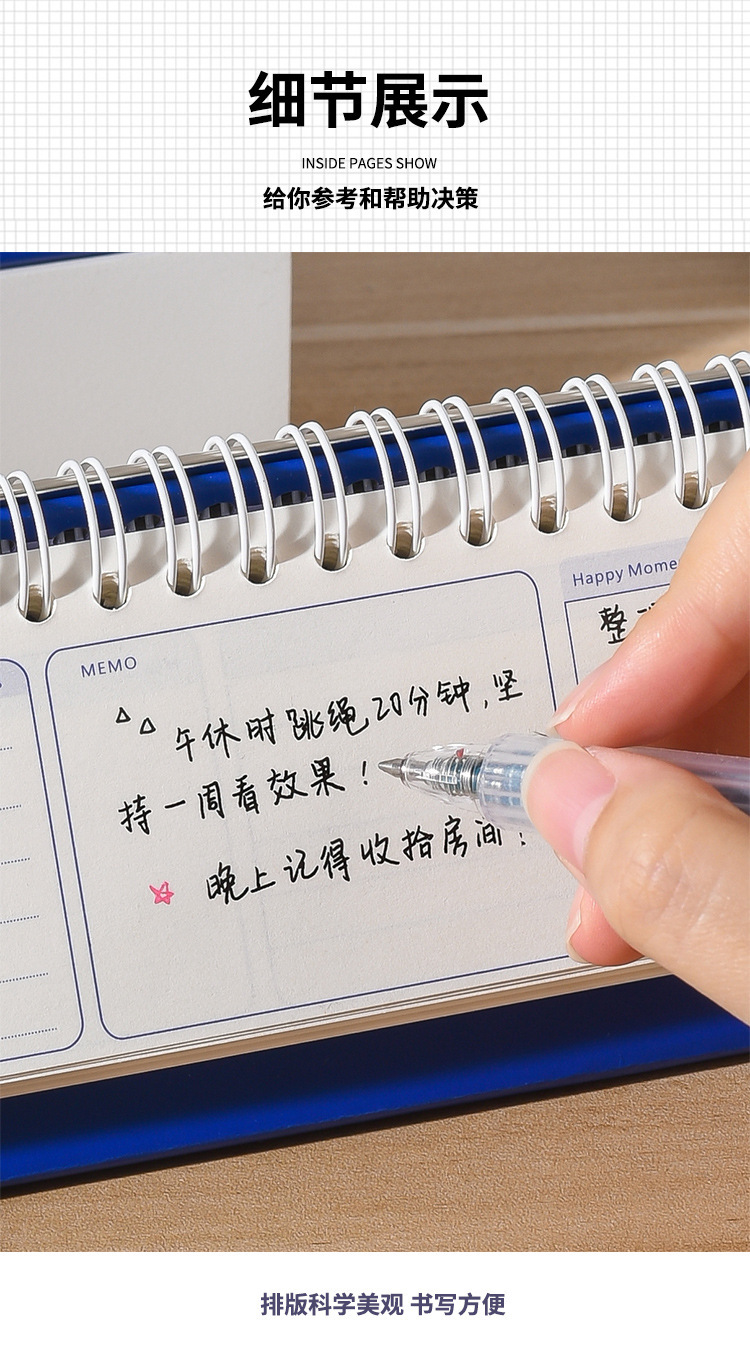 细节展示
INSIDE PAGES SHOW
给你参考和帮助决策
MEMO
午休时跳绳20分钟,坚
持一周看效果!
晚上记得收拾房间!
Happy
整
排版科学美观 书写方便